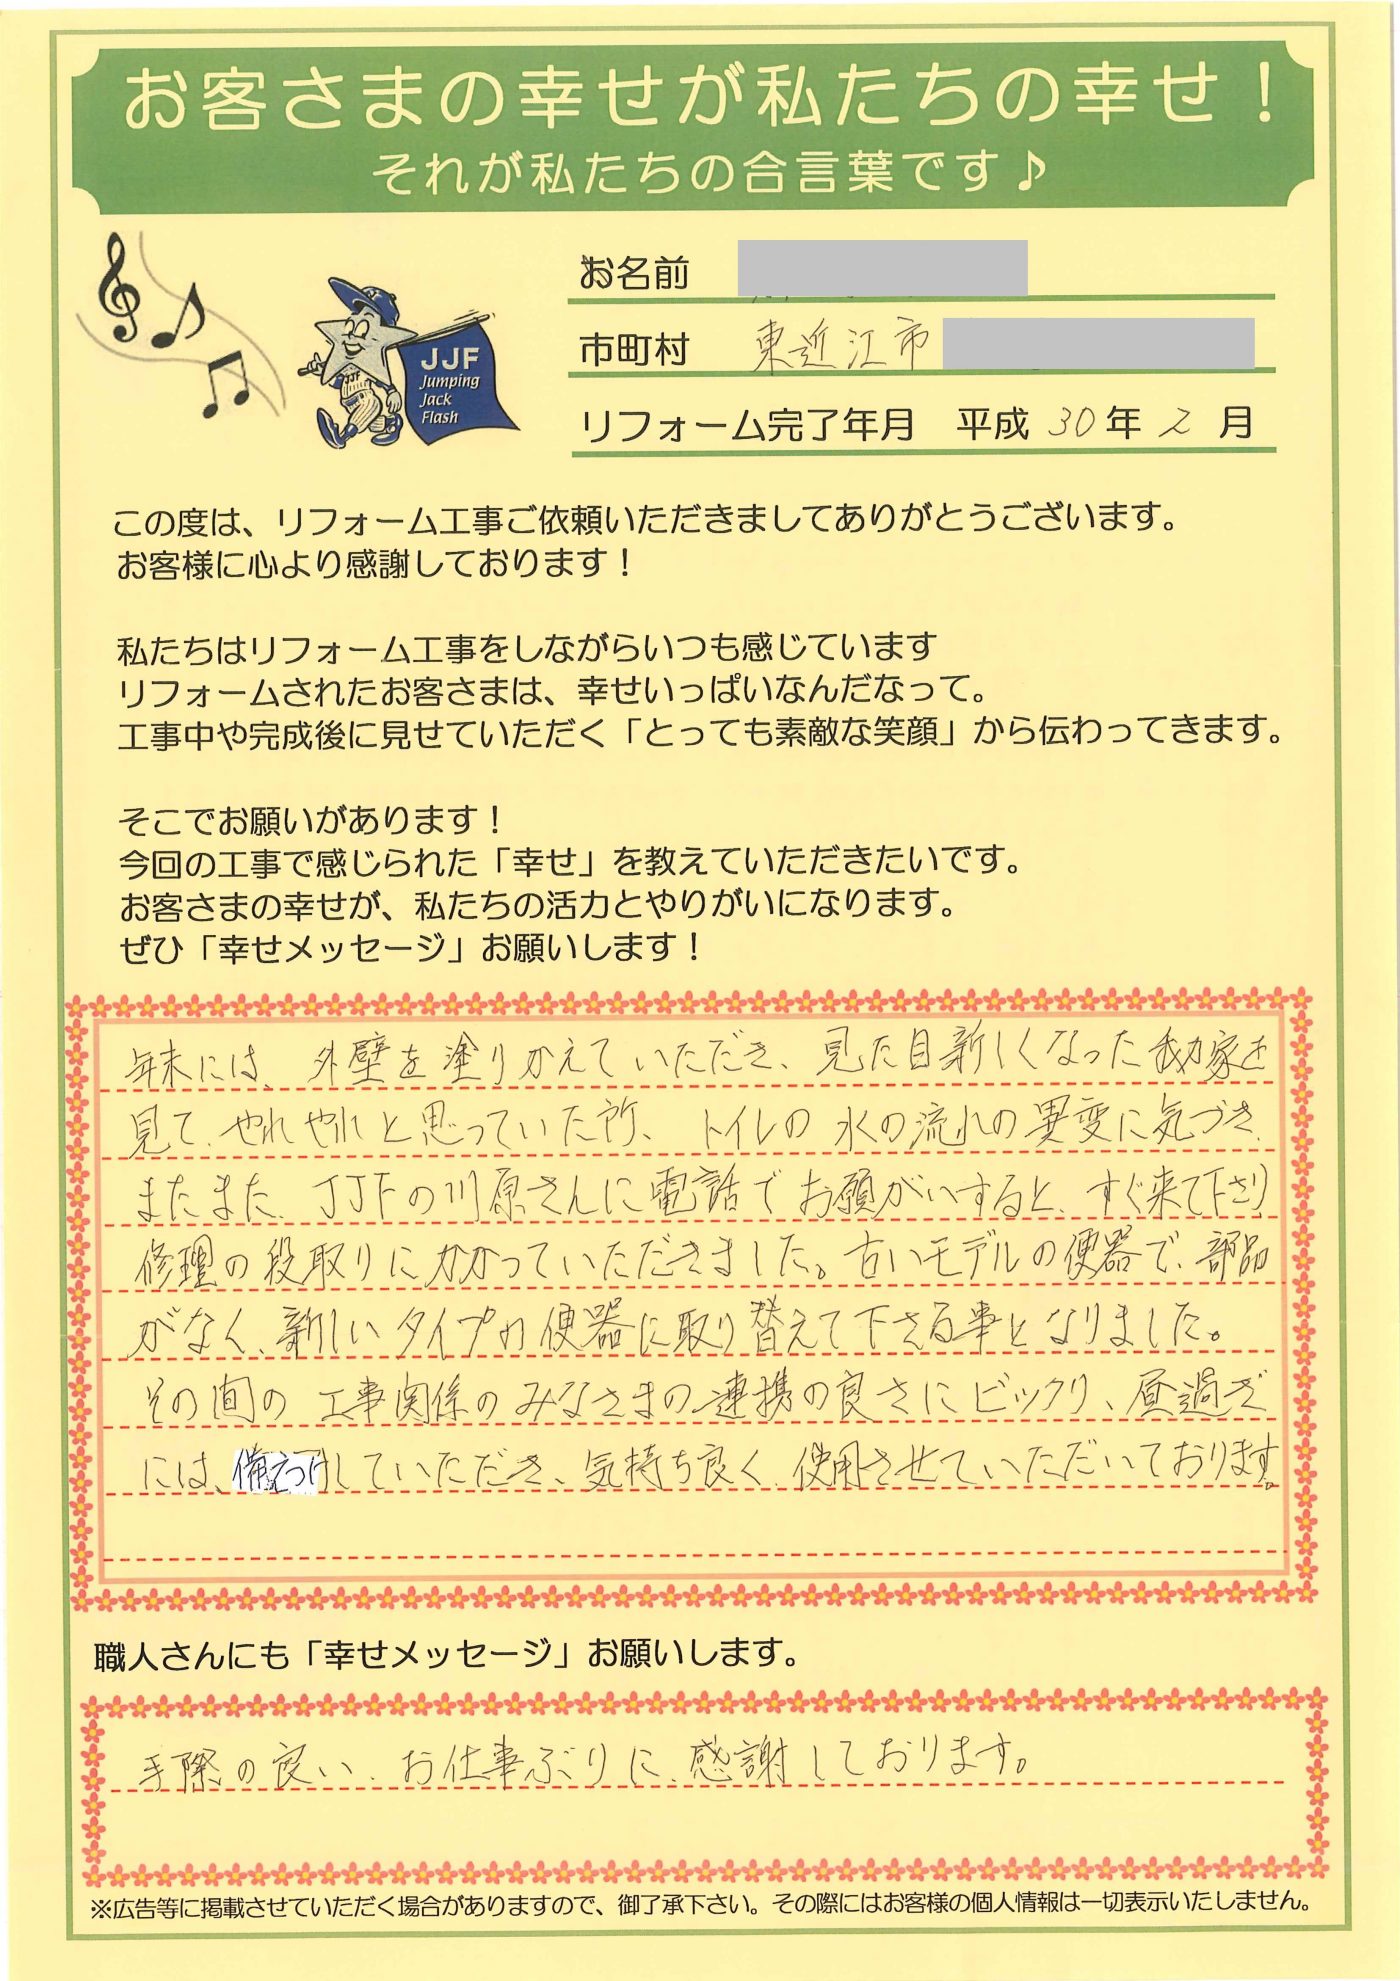 お客さまの幸せが私たちの幸せ！
それが私たちの合言葉です♪
お名前
JJF
Jumping
Jack
Flash
JJF
市町村 東近江市
リフォーム完了年月 平成 30 年 2 月
この度は、リフォーム工事ご依頼いただきましてありがとうございます。
お客様に心より感謝しております！
私たちはリフォーム工事をしながらいつも感じています
リフォームされたお客さまは、幸せいっぱいなんだなって。
工事中や完成後に見せていただく「とっても素敵な笑顔」から伝わってきます。
そこでお願いがあります！
今回の工事で感じられた「幸せ」を教えていただきたいです。
お客さまの幸せが、私たちの活力とやりがいになります。
ぜひ「幸せメッセージ」お願いします！
年末には、外壁を塗りかえていただき、見た目新しくなった我が家を
見て、やれやれと思っていた所、トイレの水の流れの異変に気づき、
またまた、JJFの川原さんに電話でお願がいすると、すぐ来て下さり
修理の段取りにかかっていただきました。古いモデルの便器で、部品
がなく、新しいタイプの便器に取り替えて下さる事となりました。
その間の工事関係のみなさまの連携の良さにビックリ、昼過ぎ
には、備えつけしていただき、気持ち良く使用させていただいております。
職人さんにも「幸せメッセージ」お願いします。
手際の良い、お仕事ぶりに、感謝しております。
※広告等に掲載させていただく場合がありますので、御了承下さい。その際にはお客様の個人情報は一切表示いたしません。